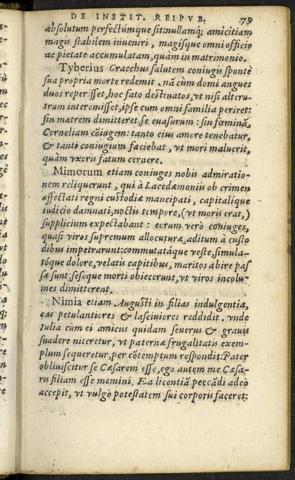 DE INSTIT. REIPVB. 79
absolutum perfectúmque sit: nullamq́; amicitiam
magis stabilem inueniri, magisque omni officio
ac pietate accumulatam, quàm in matrimonio.
Tyberius Gracchus salutem coniugis sponte
sua propria morte redemit. nã cùm domi angues
duos reperisset, hoc fato destinatos, vt nisi alteru-
trum intercemisset, ipse cum omni familia periret:
sin matrem dimitteret, se euasurum: sin fœminã,
Corneliam cõiugem: tanto eius amore tenebatur,
& tanti coniugium faciebat, vt mori malucrit,
quàm vxoris fatum cernere.
Mimorum etiam coniuges nobis admiratio-
nem reliquerunt, qui à Lacedæmoniis ob crimen
affectati regni custodiæ mancipati, capitalíque
iudicio damnati, noctis tempore, (vt moris erat,)
supplicium expectabant: eorum verò coniuges,
quasi viros supremum allocuturæ, aditum à custo
dibus impetrarunt: commutatáque veste, simula-
tóque dolore, velatis capitibus, maritos abire pas-
sæ sunt, seséque morti obiecerunt, vt viros incolu-
mes dimitterent.
Nimia etiam Augusti in filias indulgentia,
eas petulantiores & lasciuiores reddidit. vnde
Iulia cùm ei amicus quidam seuerus & grauis
suadere niteretur, vt paternæ frugalitatis exem-
plum sequeretur, per cõtemptum respondit: Pater
obliuiscitur se Cæsarem esse, ego autem me Cæsa-
ris filiam esse memini. Ea licentiâ peccãdi adeò
accepit, vt vulgò potestatem sui corporis faceret: